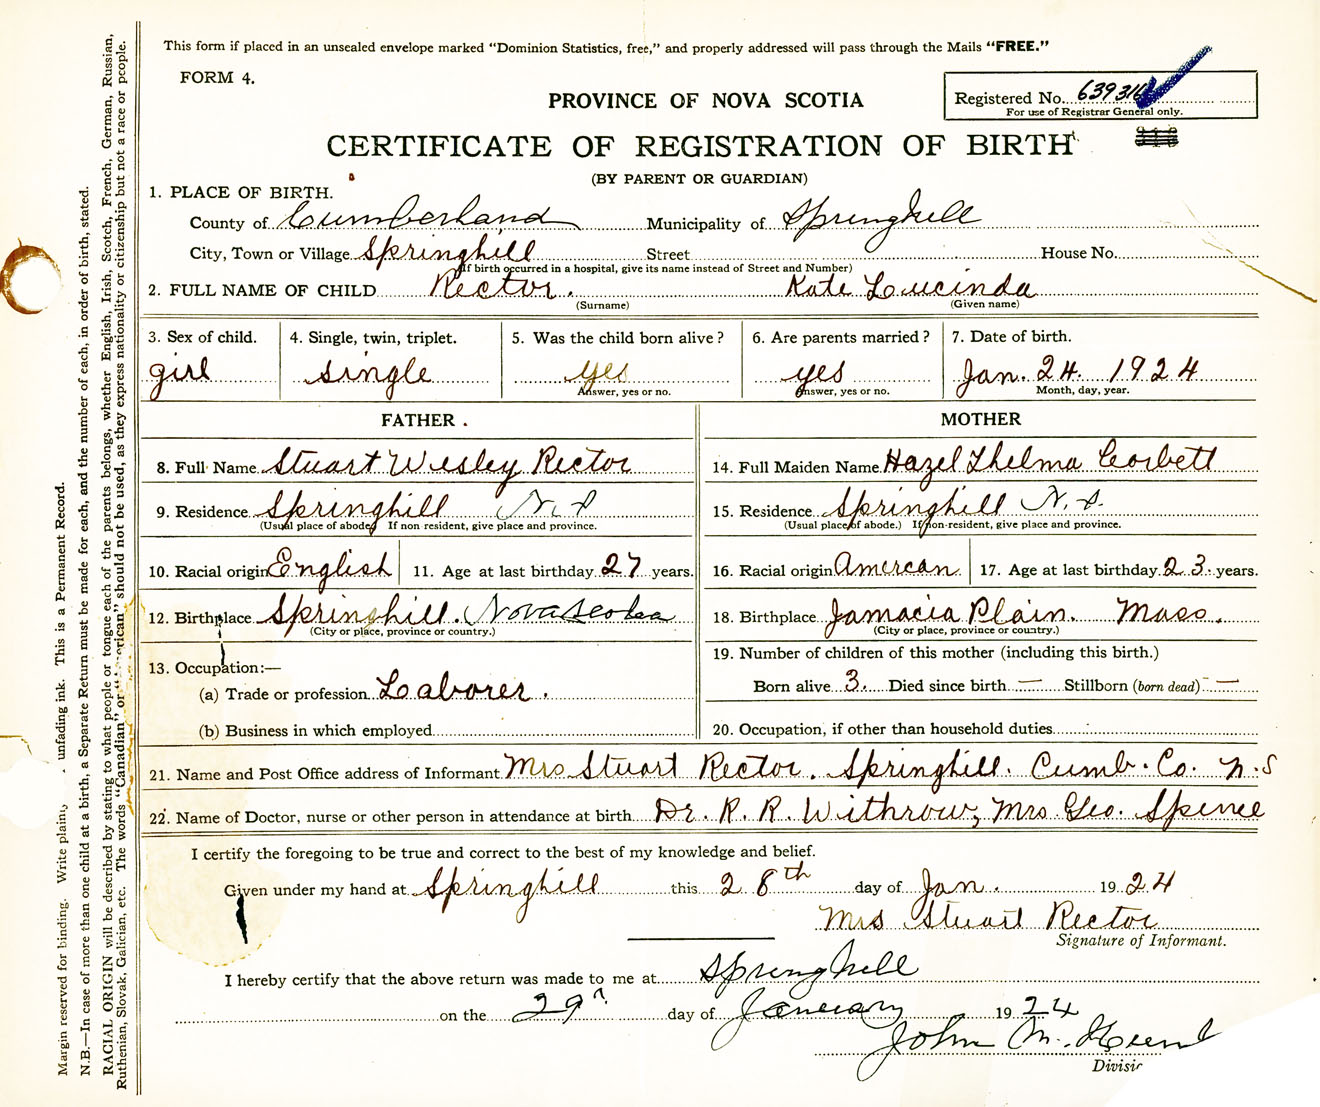 This form if placed in an unsealed envelope marked "Dominion Statistics, free," and properly addressed will pass through the Mails "FREE."
FORM 4.
Registered No. 639316
For use of Registrar General only.
PROVINCE OF NOVA SCOTIA
CERTIFICATE OF REGISTRATION OF BIRTH
(BY PARENT OR GUARDIAN)
1. PLACE OF BIRTH.
County of Cumberland Municipality of Springhill
City, Town or Village Springhill Street House No.
(If birth occurred in a hospital, give its name instead of Street and Number)
2. FULL NAME OF CHILD Rector. Kate Lucinda
(Surname) (Given name)
3. Sex of child. 4. Single, twin, triplet. 5. Was the child born alive? 6. Are parents married? 7. Date of birth.
girl single yes yes Jan. 24. 1924
Answer, yes or no. Answer, yes or no. Month, day, year.
FATHER. MOTHER
8. Full Name Stuart Wesley Rector 14. Full Maiden Name Hazel Thelma Corbett
9. Residence Springhill N.S 15. Residence Springhill N.S.
(Usual place of abode) If non-resident, give place and province. (Usual place of abode.) If non-resident, give place and province.
10. Racial origin English 11. Age at last birthday 27 years. 16. Racial origin Amercan 17. Age at last birthday 23. years.
12. Birthplace Springhill. Nova Scotia 18. Birthplace Jamacia Plain. Mass.
(City or place, province or country.) (City or place, province or country.)
13. Occupation:— 19. Number of children of this mother (including this birth.)
(a) Trade or profession Laborer. Born alive 3. Died since birth — Stillborn (born dead) —
(b) Business in which employed 20. Occupation, if other than household duties
21. Name and Post Office address of Informant Mrs Stuart Rector. Springhill. Cumb. Co. N.S
22. Name of Doctor, nurse or other person in attendance at birth Dr. R. R. Withrow, Mrs. Geo. Spence
I certify the foregoing to be true and correct to the best of my knowledge and belief.
Given under my hand at Springhill this 28th day of Jan. 1924
Mrs Stuart Rector
Signature of Informant.
I hereby certify that the above return was made to me at Springhill
on the 29 day of January 1924
John M.
Divisi
Margin reserved for binding. Write plain, unfading ink. This is a Permanent Record.
N.B.—In case of more than one child at a birth, a Separate Return must be made for each, and the number of each, in order of birth, stated.
RACIAL ORIGIN will be described by stating to what people or tongue each of the parents belongs, whether English, Irish, Scotch, French, German, Russian,
Ruthenian, Slovak, Galician, etc. The words "Canadian" or "erican" should not be used, as they express nationality or citizenship but not a race or people.